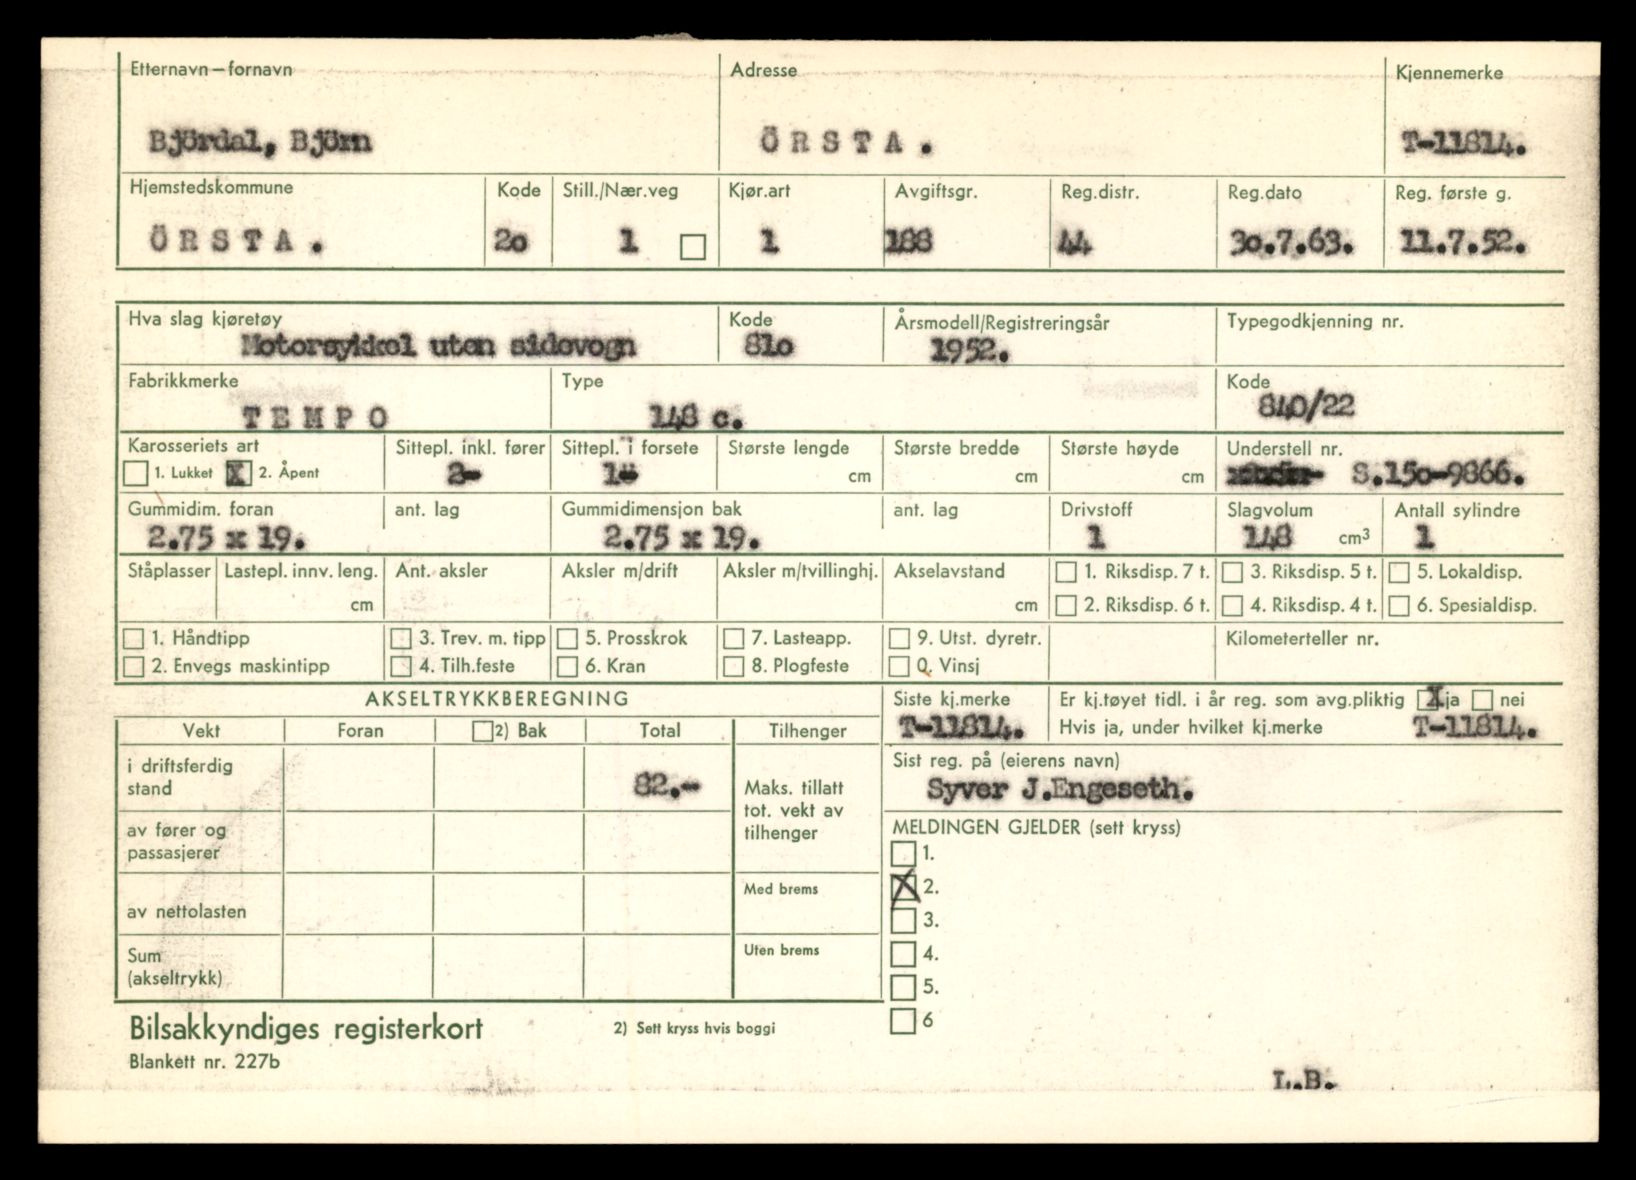 Etternavn—fornavn Adresse Kjennemerke
Björdal, Björn ÖRSTA. T-11814.
Hjemstedskommune Kode Still./Nær.veg Kjør.art Avgiftsgr. Reg.distr. Reg.dato Reg. første g.
ÖRSTA. 2o 1 1 188 44 3o.7.63. 11.7.52.
Hva slag kjøretøy Kode Årsmodell/Registreringsår Typegodkjenning nr.
Motorsykkel uten sidevogn 81o 1952.
Fabrikkmerke Type Kode
TEMPO 148 c. 840/22
Karosseriets art Sittepl. inkl. fører Sittepl. i forsete Største lengde Største bredde Største høyde Understell nr.
1. Lukket X 2. Åpent 2- 1- cm cm cm S.15o-9866.
Gummidim. foran ant. lag Gummidimensjon bak ant. lag Drivstoff Slagvolum Antall sylindre
2.75 x 19. 2.75 x 19. 1 148 cm³ 1
Ståplasser Lastepl. innv. leng. Ant. aksler Aksler m/drift Aksler m/tvillinghj. Akselavstand 1. Riksdisp. 7 t. 3. Riksdisp. 5 t. 5. Lokaldisp.
cm cm 2. Riksdisp. 6 t. 4. Riksdisp. 4 t. 6. Spesialdisp.
1. Håndtipp 3. Trev. m. tipp 5. Prosskrok 7. Lasteapp. 9. Utst. dyretr. Kilometerteller nr.
2. Envegs maskintipp 4. Tilh.feste 6. Kran 8. Plogfeste 0. Vinsj
AKSELTRYKKBEREGNING Siste kj.merke Er kj.tøyet tidl. i år reg. som avg.pliktig X ja nei
T-11814. Hvis ja, under hvilket kj.merke T-11814.
Vekt Foran 2) Bak Total Tilhenger
Sist reg. på (eierens navn)
Syver J.Engeseth.
i driftsferdig
stand 82.- Maks. tillatt
tot. vekt av
tilhenger
av fører og
passasjerer
MELDINGEN GJELDER (sett kryss)
1.
X 2.
3.
4.
5.
6
Med brems
av nettolasten
Uten brems
Sum
(akseltrykk)
Bilsakkyndiges registerkort 2) Sett kryss hvis boggi
Blankett nr. 227b
L.B.